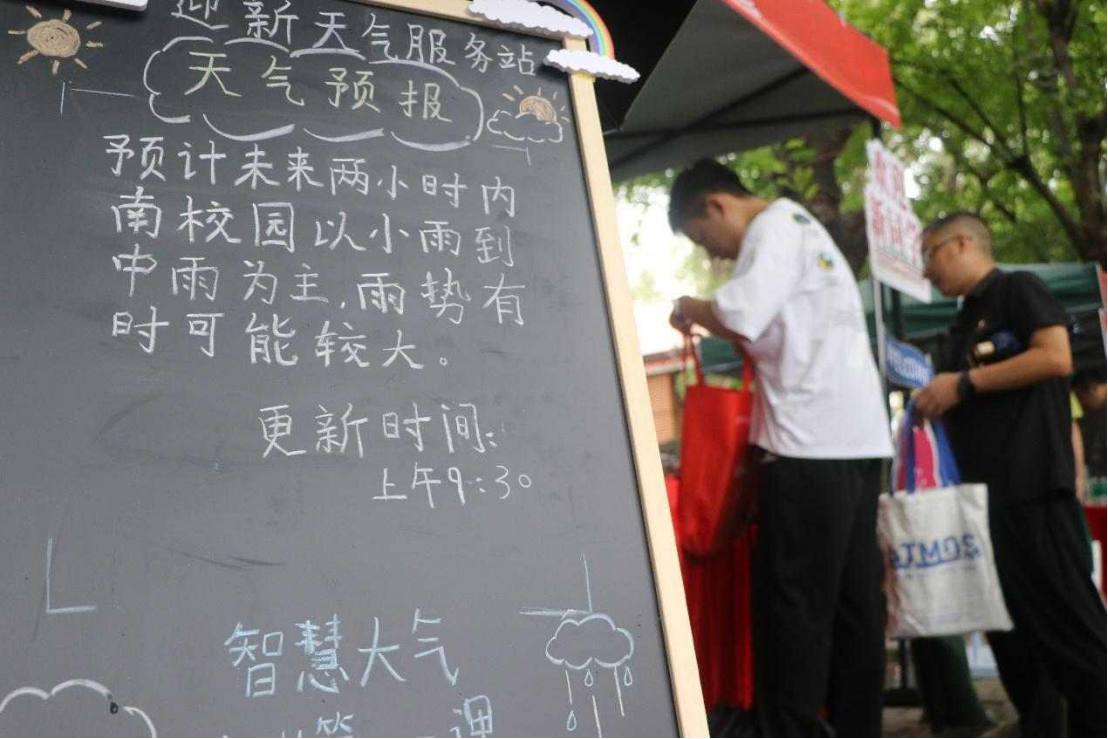 迎新天气服务站
天气预报
预计未来两小时内
南校园以小雨到
中雨为主，雨势有
时可能较大。
更新时间：
上午9:30
智慧大气
第一课
ATMOS